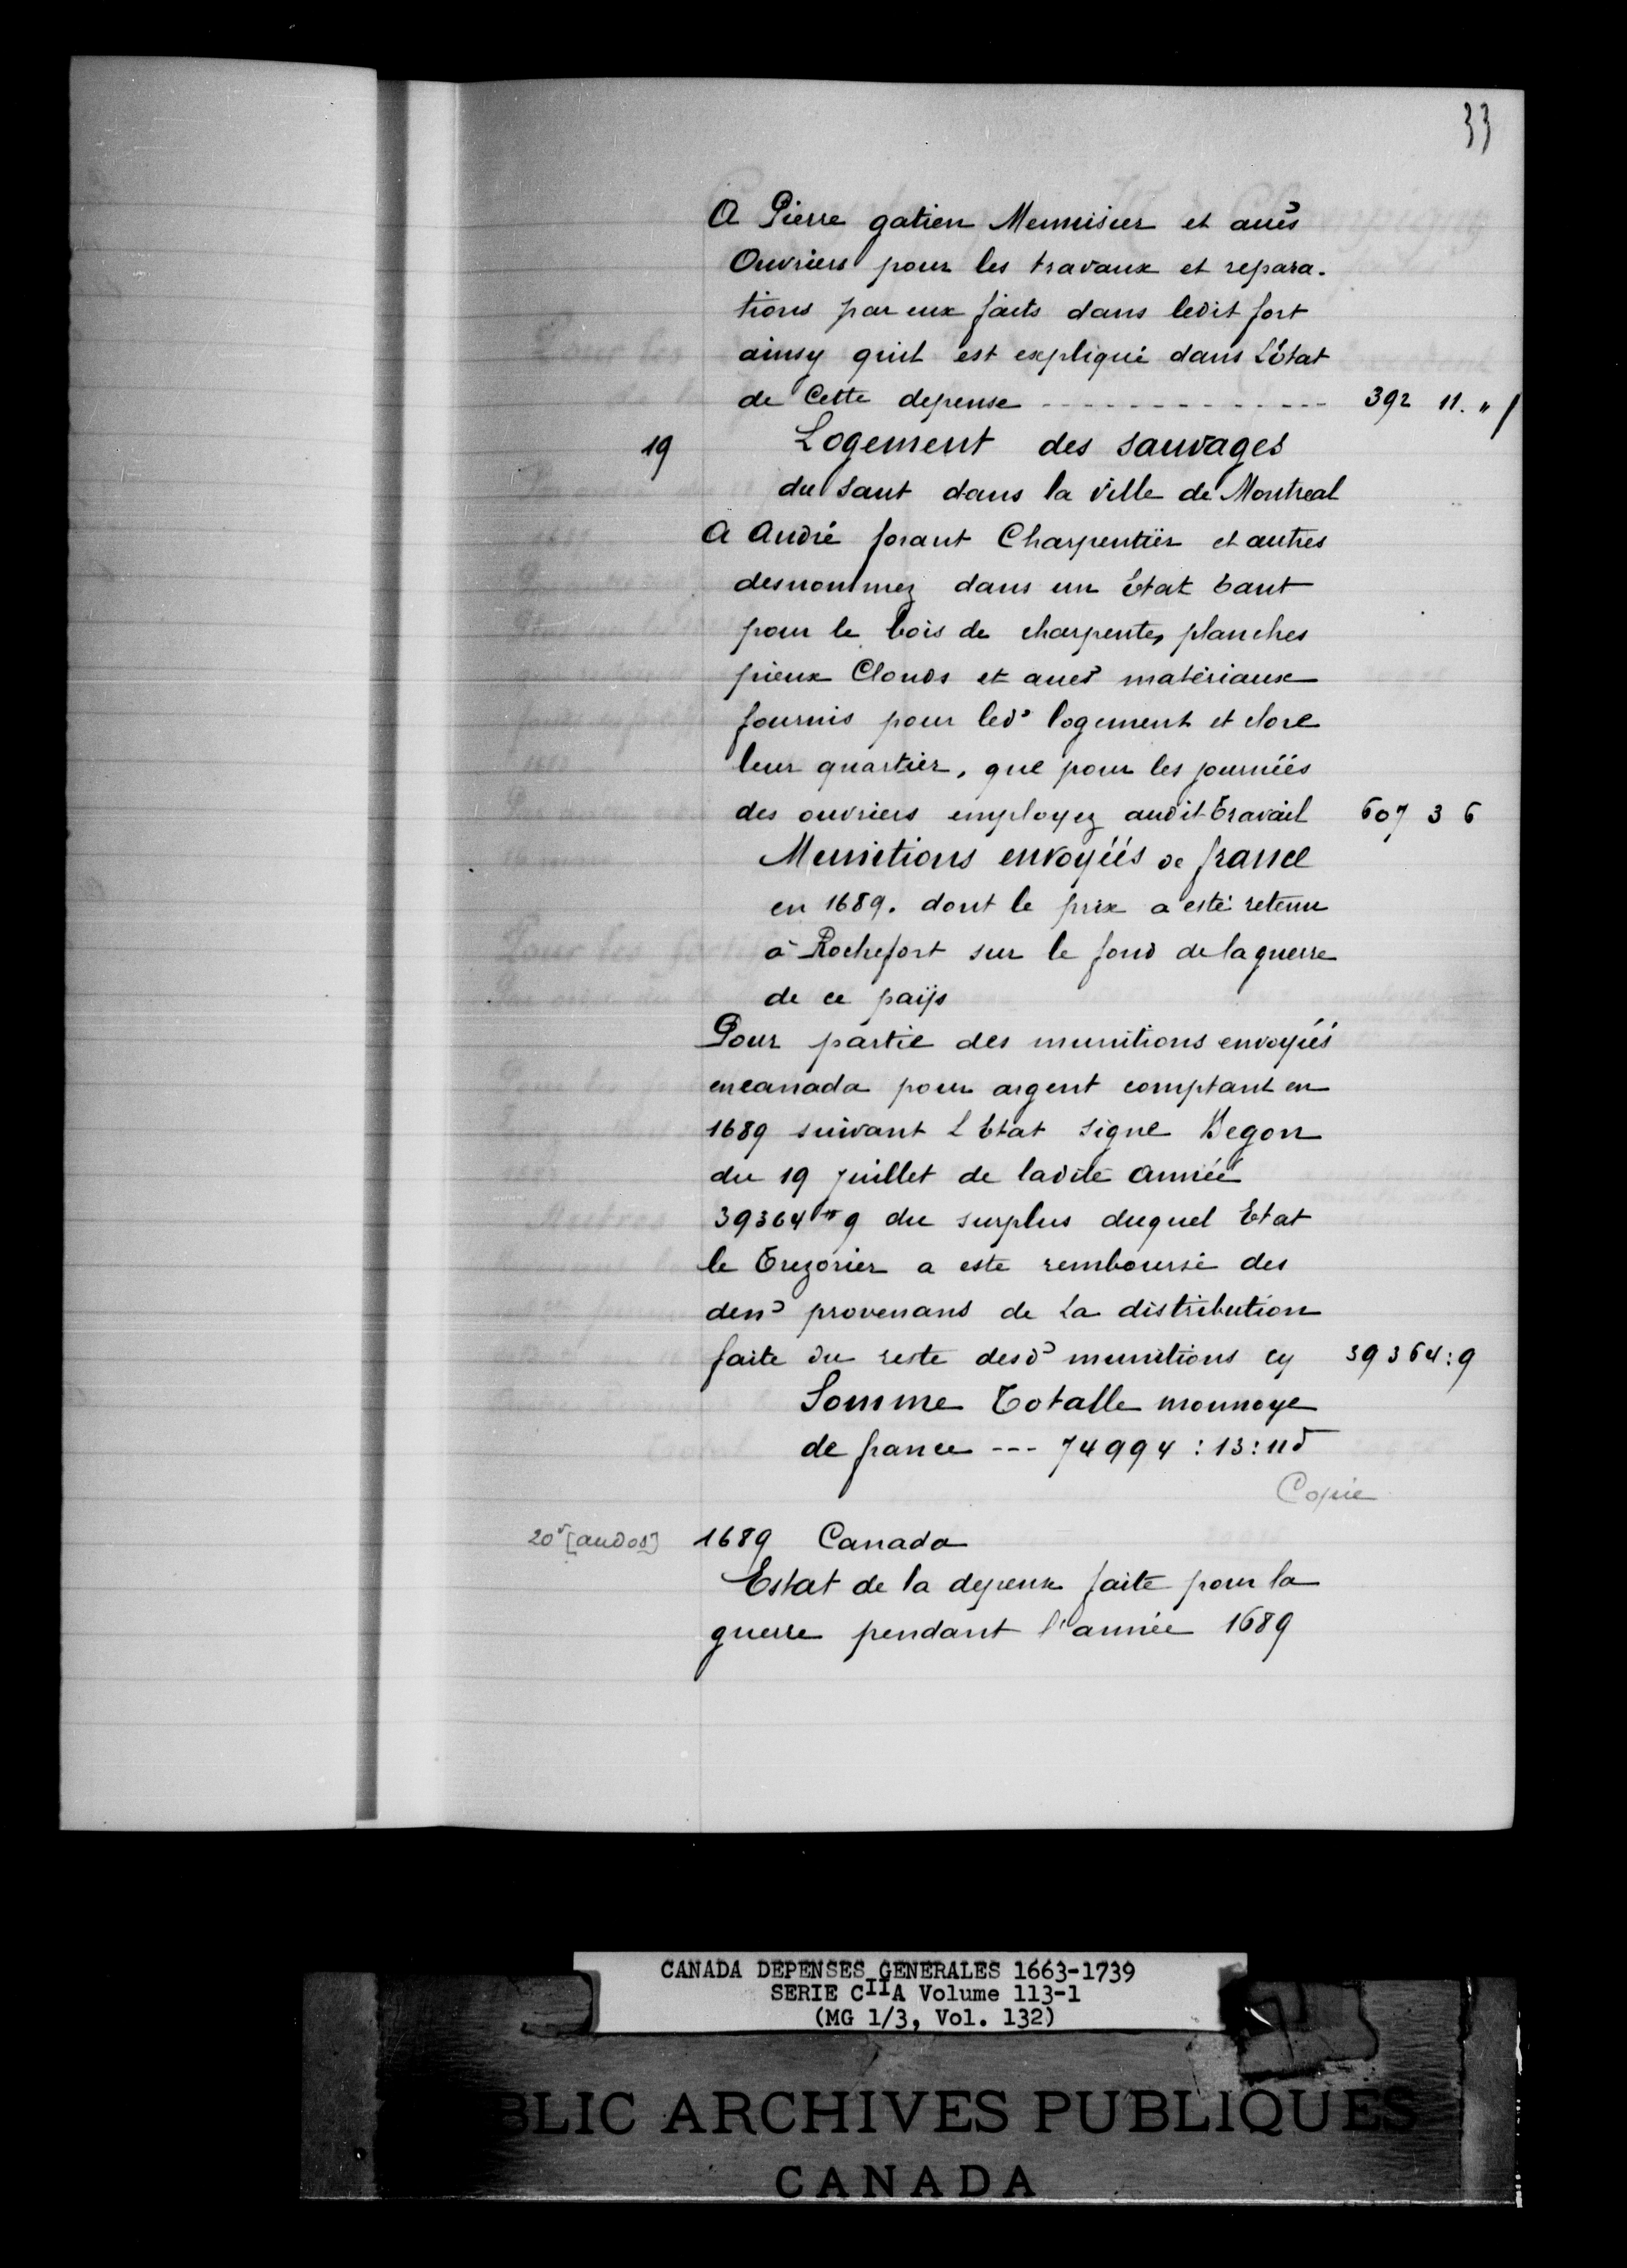 33
A Pierre gatien Menuisier et aues
Ouvriers pour les travaux et repara-
tions par eux faits dans ledit fort
ainsy quil est expliqué dans L'état
de Cette depense ------------- 392 11. "
19 Logement des sauvages
du Saut dans la Ville de Montreal
A André forant Charpentier et autres
desnommez dans un Etat tant
pour le bois de charpente, planches
pieux Clouds et aues matériaux
fournis pour led' logement et clore
leur quartier, que pour les journéés
des ouvriers employez audit travail 607 3 6
Munitions envoyéés de france
en 1689. dont le prix a esté retenu
à Rochefort sur le fond de la guerre
de ce païjs
Pour partie des munitions envoyéés
en canada pour argent comptant en
1689 suivant L Etat signé Begon
du 19 juillet de ladite année
39364 ₶ 9 du surplus duquel Etat
le Trezorier a esté remboursé des
den' provenans de La distribution
faite du reste desd' munitions cy 39364:9
Somme Totalle monnoye
de france --- 74994 : 13: 11d
Copie
20r [au dos] 1689 Canada
Estat de la depense faite pour la
guerre pendant l'année 1689
CANADA DEPENSES GENERALES 1663-1739
SERIE CIIA Volume 113-1
(MG 1/3, Vol. 132)
BLIC ARCHIVES PUBLIQUES
CANADA